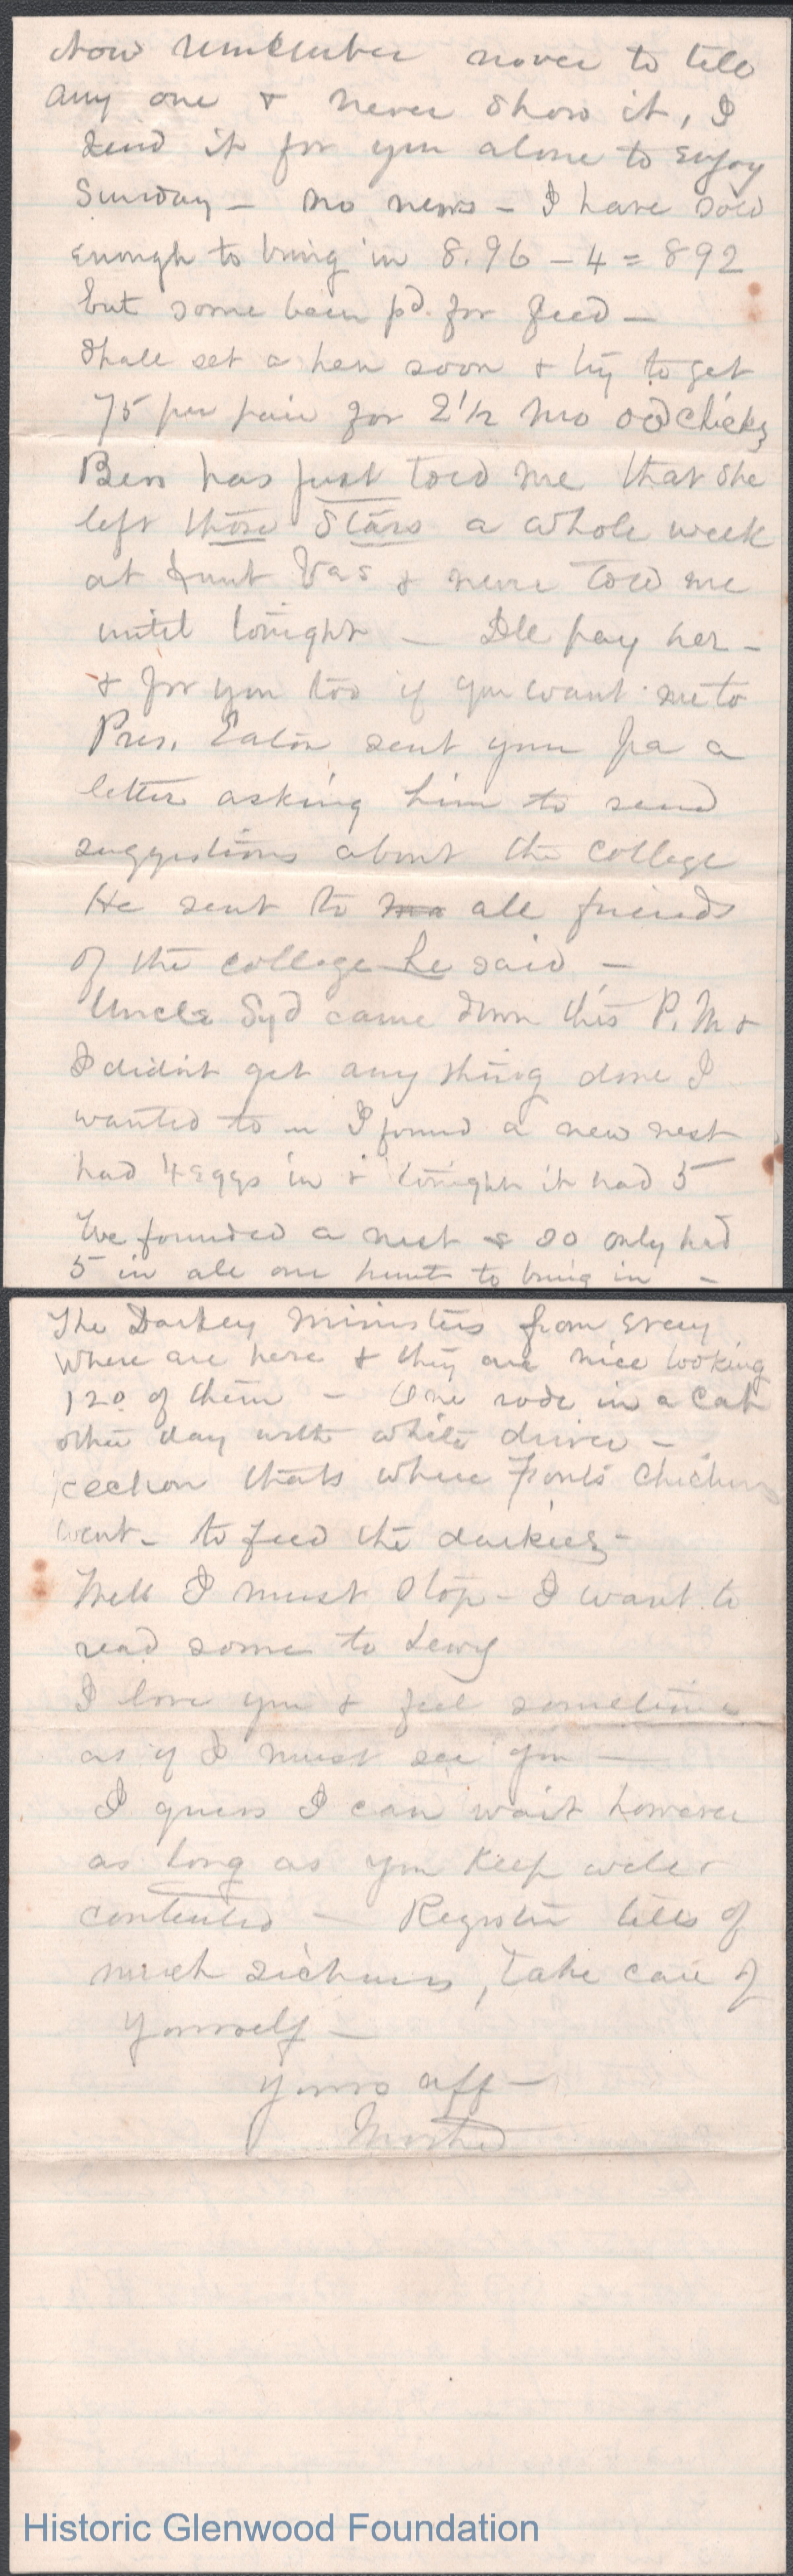 Now remember never to tell
any one & never show it, I
send it for you alone to enjoy
Sunday – no news – I have sold
enough to bring in 8.96 – 4 = 892
but some been pd. for feed –
Shall set a hen soon & try to get
75 per pair for 2 1/2 mo old chicks
Bess has just told me that she
left those Stars a whole week
at Aunt Vas & never told me
until tonight – Ill pay her –
& for you too if you want me to
Pres. Eaton sent your pa a
letter asking him to send
suggestions about the college
He sent to all friends
of the college he said –
Uncle Syd came down this P.M &
I didn't get any thing done I
wanted to – I found a new nest
had 4 eggs in & tonight it had 5
We founded a nest & so only had
5 in all one hunt to bring in –
The Darkey Ministers from every
where are here & they are nice looking
120 of them – One rode in a Cab
other day with white driver –
reckon thats where Fonts Chickens
went – to feed the darkies –
Well I must stop – I want to
read some to Lewy
I love you & feel sometimes
as if I must see you –
I guess I can wait however
as long as you keep well &
contented – Register tells of
much sickness, take care of
yourself –
Yours aff –
Mother
Historic Glenwood Foundation